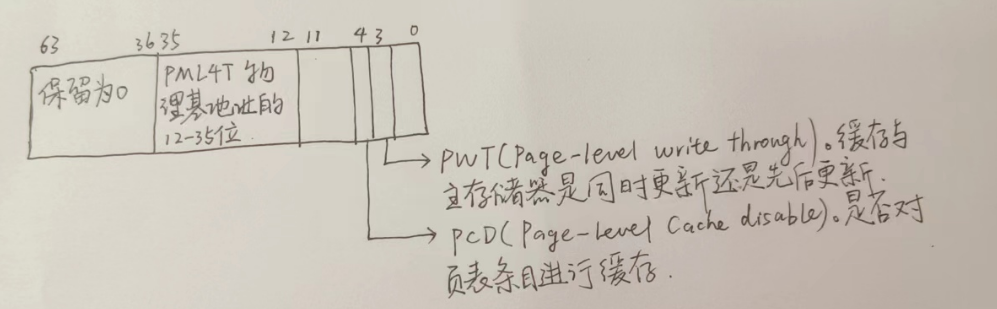 63 3635 12 11 4 3 0
保留为0
PML4T 物
理基地址的
12-35位.
PWT(Page-level write through)。缓存与
主存储器是同时更新还是先后更新.
PCD(Page-level Cache disable)。是否对
页表条目进行缓存.